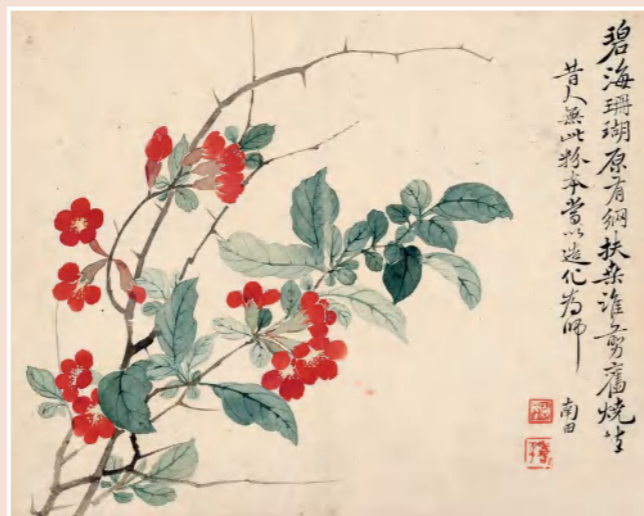 碧海珊瑚原有網扶桑誰剪舊燒空
昔人無此粉本當以造化為師
南田